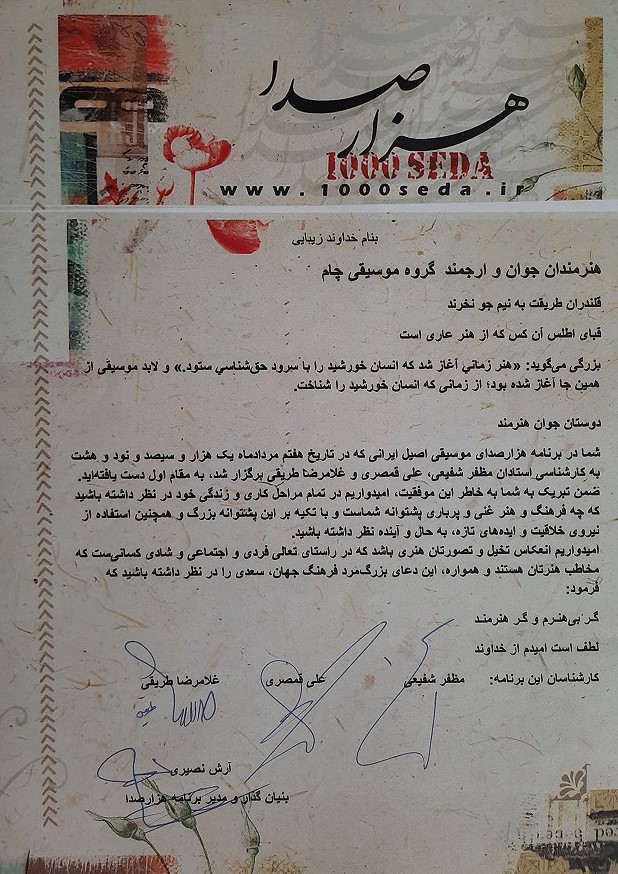 هزار صدا
1000 SEDA
www.1000seda.ir
بنام خداوند زیبایی
هنرمندان جوان و ارجمند گروه موسیقی چام
قلندران طریقت به نیم جو نخرند
قبای اطلس آن کس که از هنر عاری است
بزرگی می‌گوید: «هنر زمانی آغاز شد که انسان خورشید را با سرود حق‌شناسی ستود.» و لابد موسیقی از
همین جا آغاز شده بود؛ از زمانی که انسان خورشید را شناخت.
دوستان جوان هنرمند
شما در برنامه هزارصدای موسیقی اصیل ایرانی که در تاریخ هفتم مردادماه یک هزار و سیصد و نود و هشت
به کارشناسی استادان مظفر شفیعی، علی قمصری و غلامرضا طریقی برگزار شد، به مقام اول دست یافته‌اید.
ضمن تبریک به شما به خاطر این موفقیت، امیدواریم در تمام مراحل کاری و زندگی خود در نظر داشته باشید
که چه فرهنگ و هنر غنی و پرباری پشتوانه شماست و با تکیه بر این پشتوانه بزرگ و همچنین استفاده از
نیروی خلاقیت و ایده‌های تازه، به حال و آینده نظر داشته باشید.
امیدواریم انعکاس تخیل و تصورتان هنری باشد که در راستای تعالی فردی و اجتماعی و شادی کسانی‌ست که
مخاطب هنرتان هستند و همواره، این دعای بزرگ‌مرد فرهنگ جهان، سعدی را در نظر داشته باشید که
فرمود:
گر بی‌هنرم و گر هنرمند
لطف است امیدم از خداوند
کارشناسان این برنامه: مظفر شفیعی علی قمصری غلامرضا طریقی
آرش نصیری
بنیان گذار و مدیر برنامه هزارصدا